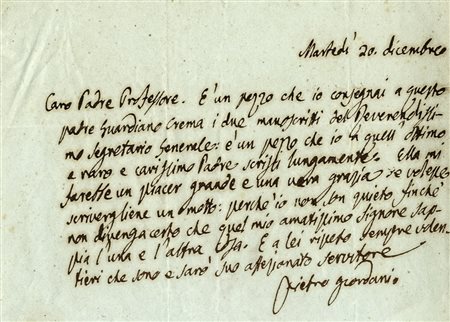 Martedì 20. dicembre
Caro Padre Professore. È un pezzo che io consegnai a questo
padre Guardiano Crema i due manoscritti del Reverendissi-
mo Segretario Generale: è un pezzo che io a quell'ottimo
e raro e carissimo Padre scrissi lungamente. Ella mi
farebbe un piacer grande e una vera grazia se volesse
scrivergliene un motto: perchè io non son quieto finchè
non divenga certo che quel mio amatissimo Signore sap-
pia l'una e l'altra cosa. E a lei ripeto sempre volen-
tieri che sono e sarò suo affezionato servitore
pietro giordani